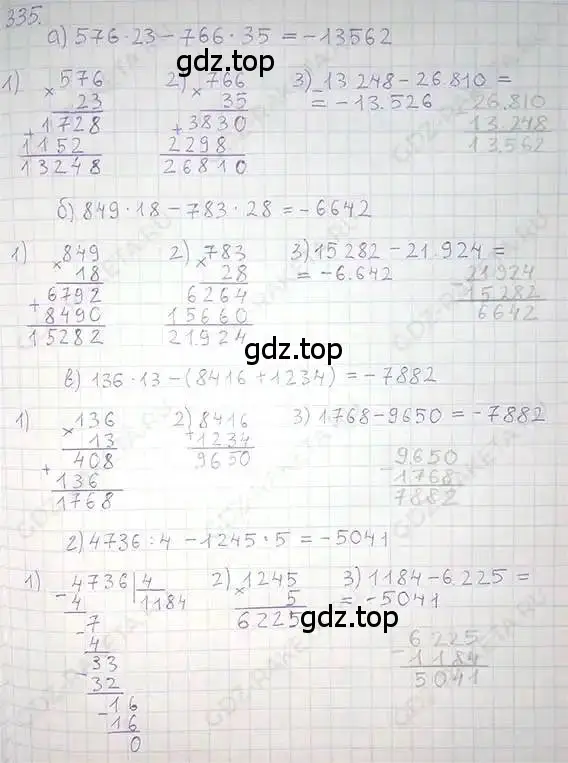 335.
а) 576·23-766·35 = -13562
gdz.top
1) 576
× 23
+1728
1152
13248
2) 766
× 35
+3830
2298
26810
3) 13248-26.810 =
= -13.526
26.810
13.248
13.562
б) 849·18-783·28 = -6642
1) 849
× 18
+6792
8490
15282
2) 783
× 28
6264
15660
21.924
3) 15282-21.924 =
= -6.642
21924
15.282
6642
gdz.top
в) 136·13-(8416+1234) = -7882
1) 136
× 13
+408
136
1768
2) 8416
+1234
9650
3) 1768-9650 = -7882
-9650
1768
7882
г) 4736:4-1245·5 = -5041
1) -4736|4
4 1184
-7
4
-33
32
-16
16
0
2) 1245
× 5
6225
3) 1184-6.225 =
= -5041
-6225
1184
5041
gdz.top